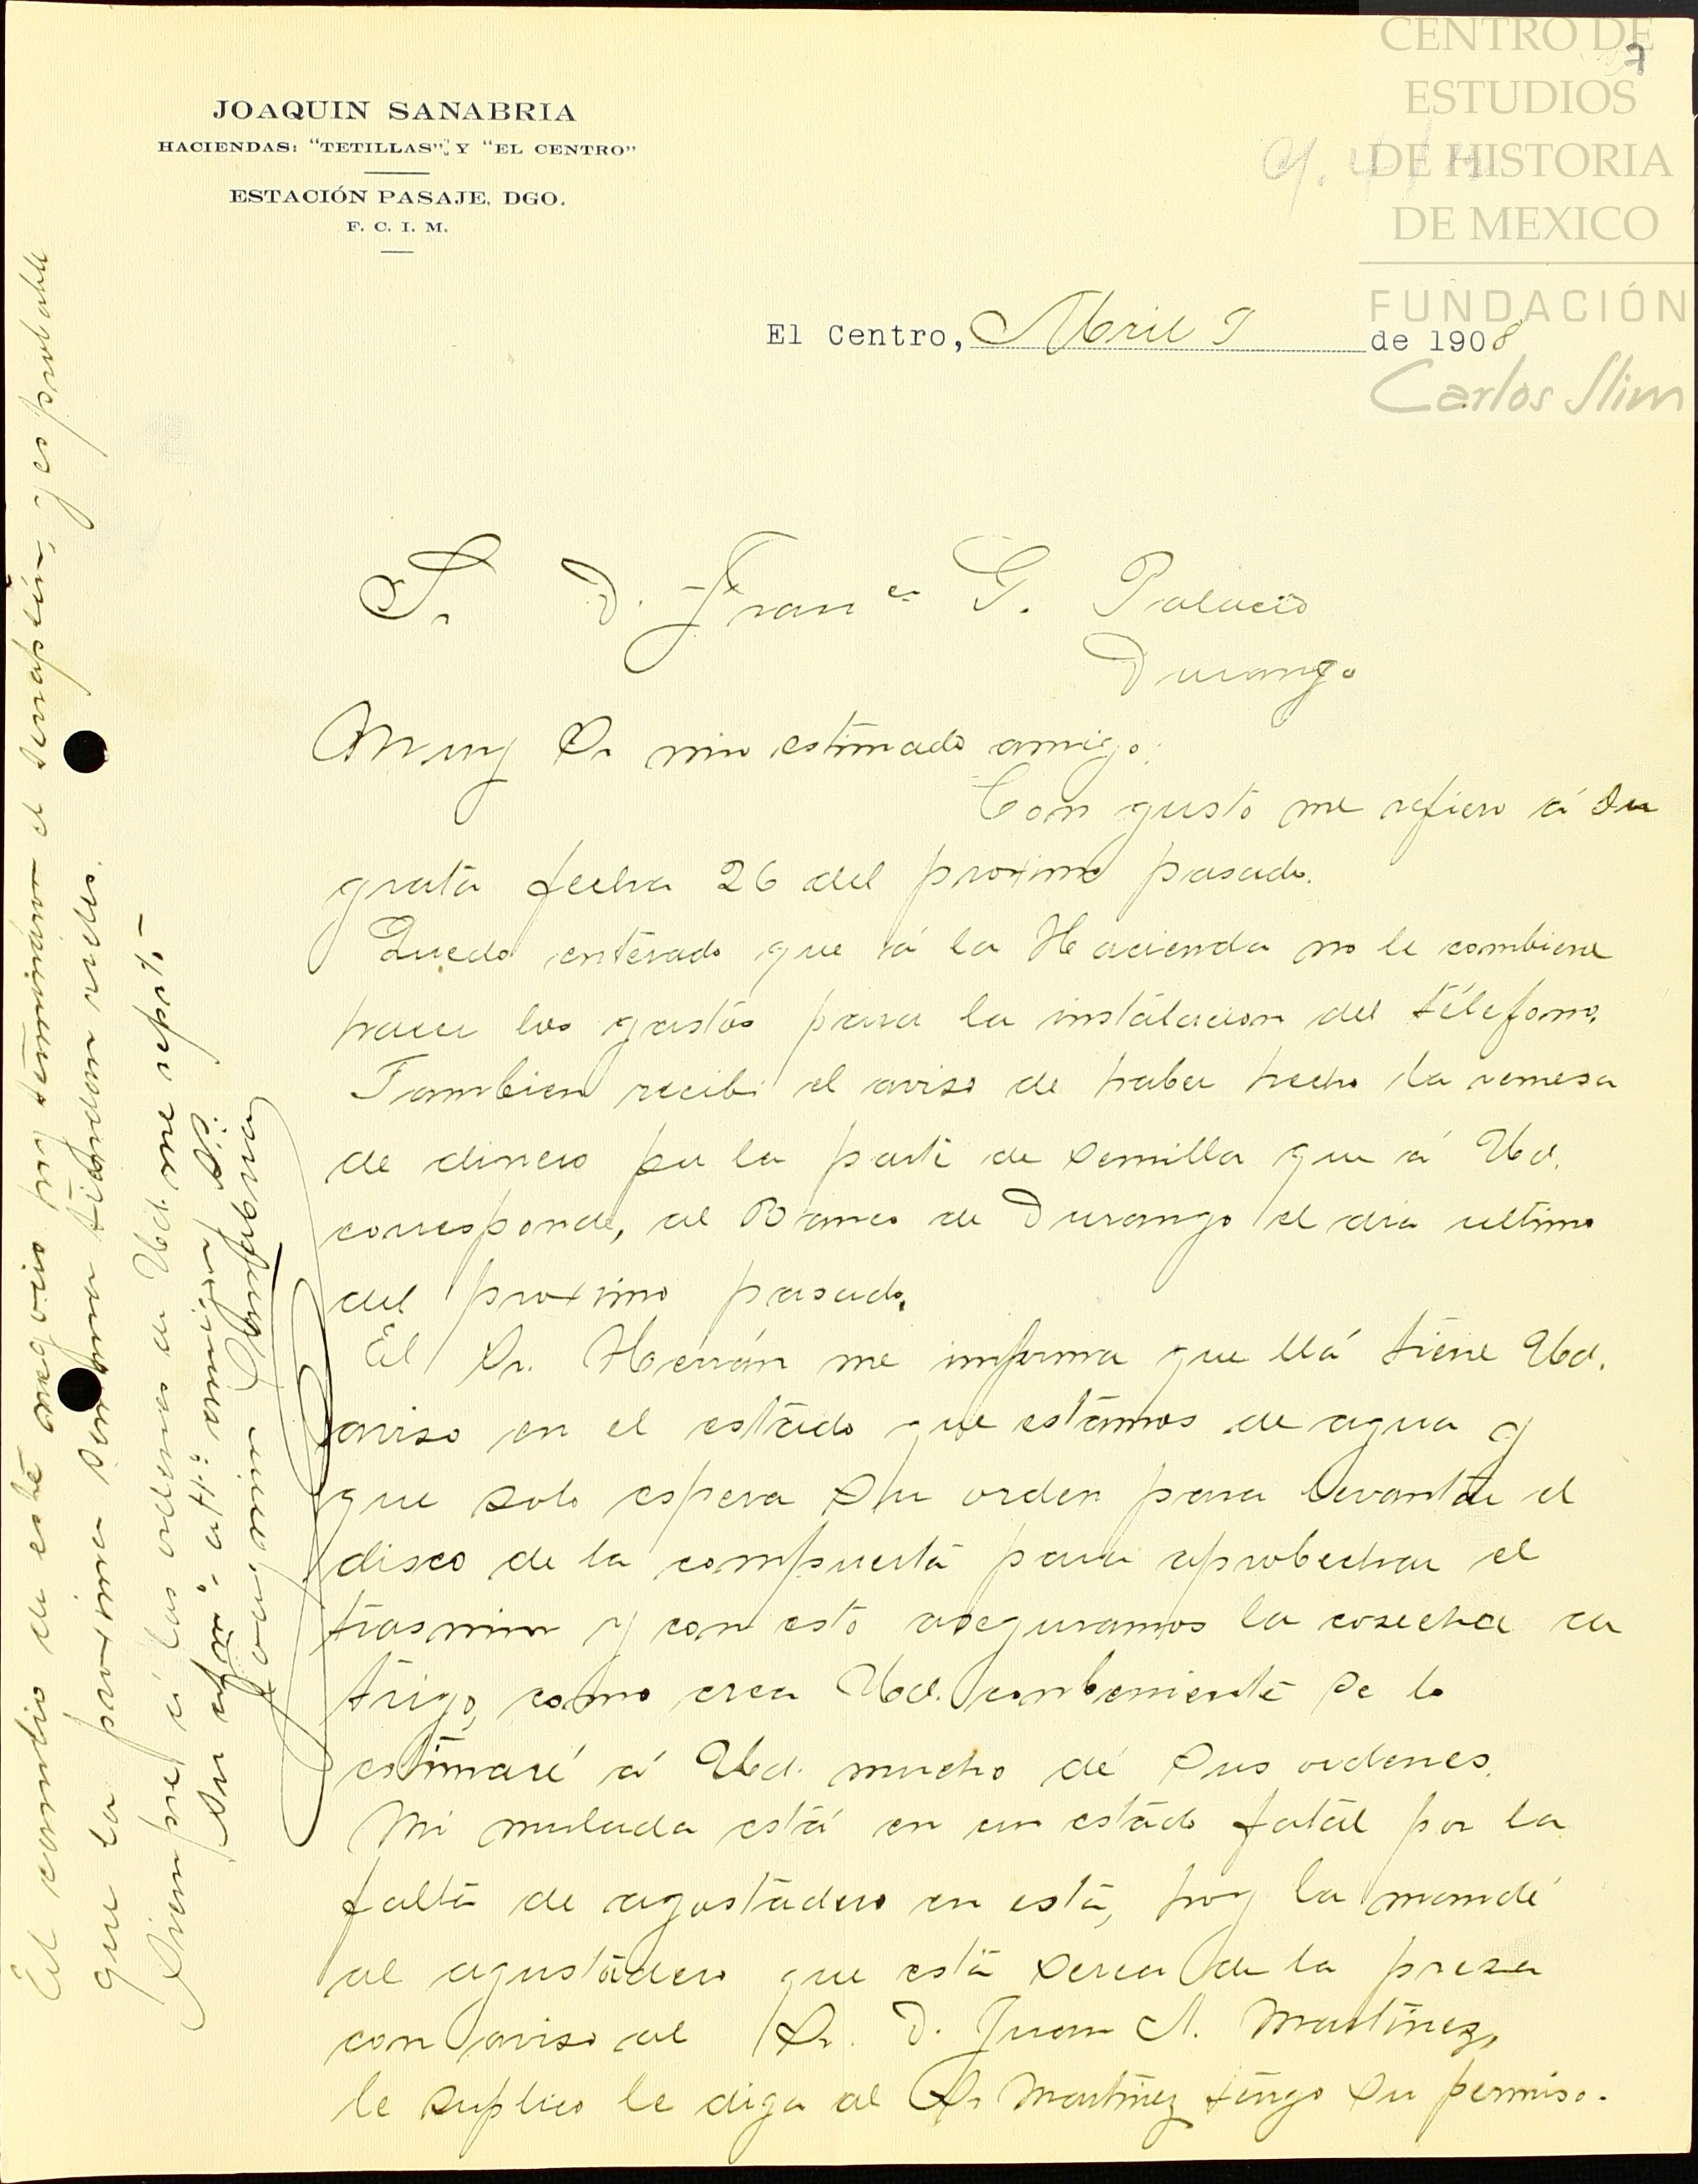 CENTRO DE
ESTUDIOS
DE HISTORIA
DE MEXICO
FUNDACIÓN
Carlos Slim
7
JOAQUIN SANABRIA
HACIENDAS: "TETILLAS" Y "EL CENTRO"
ESTACIÓN PASAJE, DGO.
F. C. I. M.
El Centro, Abril 9 de 1908
Sr. D. Franco G. Palacio
Durango
Muy Sr mio estimado amigo:
Con gusto me refiero á su
grata fecha 26 del proximo pasado.
Quedo enterado que á la Hacienda no le combiene
hacer los gastos para la instalacion del télefono.
Tambien recibi el aviso de haber hecho la remesa
de dinero por la parte de semilla que á Ud.
corresponde, al Banco de Durango el dia ultimo
del proximo pasado.
El Sr. Herrán me informa que llá tiene Ud.
aviso en el estado que estamos de agua y
que solo espera su orden para levantar el
disco de la compuerta para aprobechar el
trasmin y con esto aseguramos la cosecha de
trigo, como crea Ud. conbeniente se lo
estimaré á Ud. mucho dé sus ordenes.
Mi mulada está en un estado fatal por la
falta de agostadero en esta, hoy la mandé
al agostadero que está serca de la presa
con aviso al Sr. D. Juan N. Martínez,
le suplico le diga al Sr Martínez tengo su permiso.
El cambio de este negocio hoy terminaron el semaplin, y es probable
que la proxima semana tiendan rieles.
Siempre á las ordenes de Ud. me repto.-
Su afmo. atto. amigo y SS.
Joaquin Sanabria